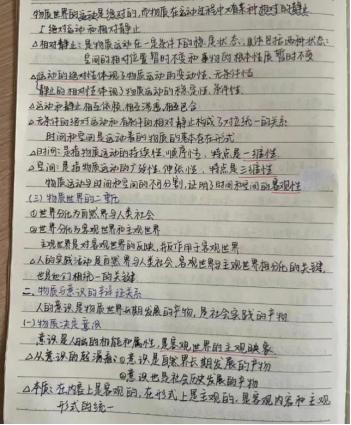 物质世界的运动是绝对的，而物质在运动过程中又有某种相对的静止
绝对运动和相对静止
△相对静止：是物质运动在一定条件下的稳定状态，具体包括两种状态：
空间的相对位置暂时不变和事物的根本性质暂时不变
△运动的绝对性体现了物质运动的变动性、无条件性
静止的相对性体现了物质运动的稳定性、条件性
△运动和静止相互依赖、相互渗透、相互包含
△无条件的绝对运动和有条件的相对静止构成了对立统一的关系
时间和空间是运动着的物质的基本存在形式
△时间：是指物质运动的持续性、顺序性，特点是一维性
△空间：是指物质运动的广延性、伸张性，特点是三维性
物质运动与时间和空间的不可分割，证明了时间和空间的客观性
(三)物质世界的二重化
①世界分化为自然界与人类社会
②世界分化为客观世界和主观世界
主观世界是对客观世界的反映，并反作用于客观世界
△人的实践活动是自然界与人类社会、客观世界与主观世界相分化的关键，
也是它们相统一的关键
二、物质与意识的辩证关系
人的意识是物质世界长期发展的产物，是社会实践的产物
(一)物质决定意识
意识是人脑的机能和属性，是客观世界的主观映象
△从意识的起源看：①意识是自然界长期发展的产物
②意识也是社会历史发展的产物
△本质：在内容上是客观的，在形式上是主观的，是客观内容和主观
形式的统一